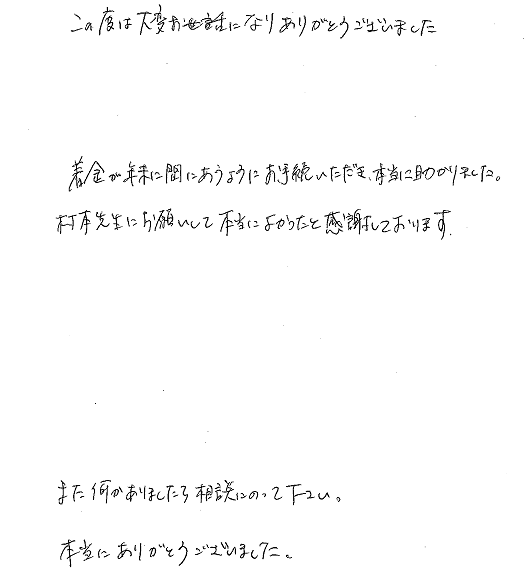 この度は大変お世話になりありがとうございました
着金が年末に間にあうようにお手続いただき、本当に助かりました。
村本先生にお願いして本当によかったと感謝しております。
また何かありましたら相談にのって下さい。
本当にありがとうございました。